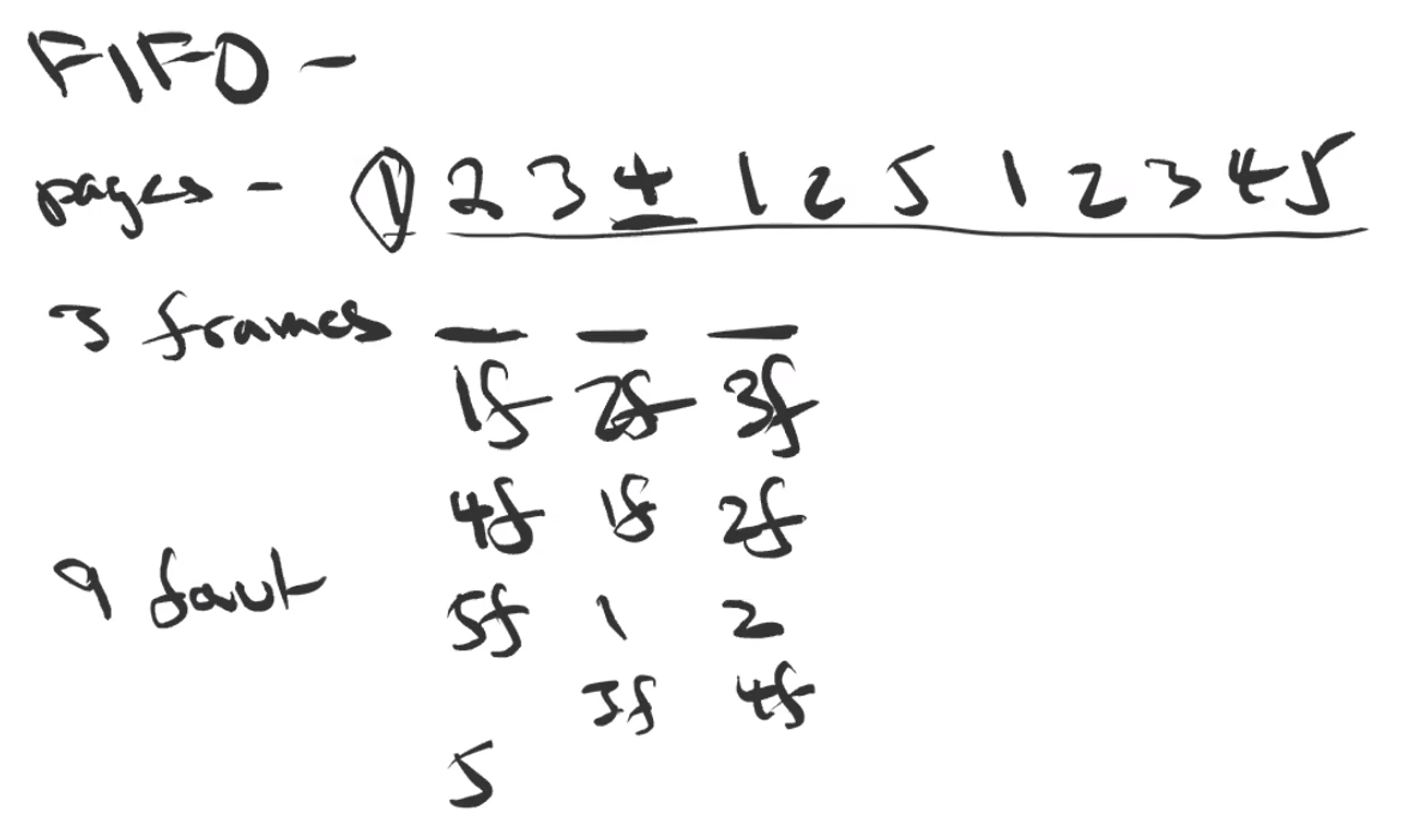 FIFO -
pages - 1 2 3 4 1 2 5 1 2 3 4 5
3 frames
1f 2f 3f
4f 1f 2f
9 faut
5f 1 2
3f 4f
5